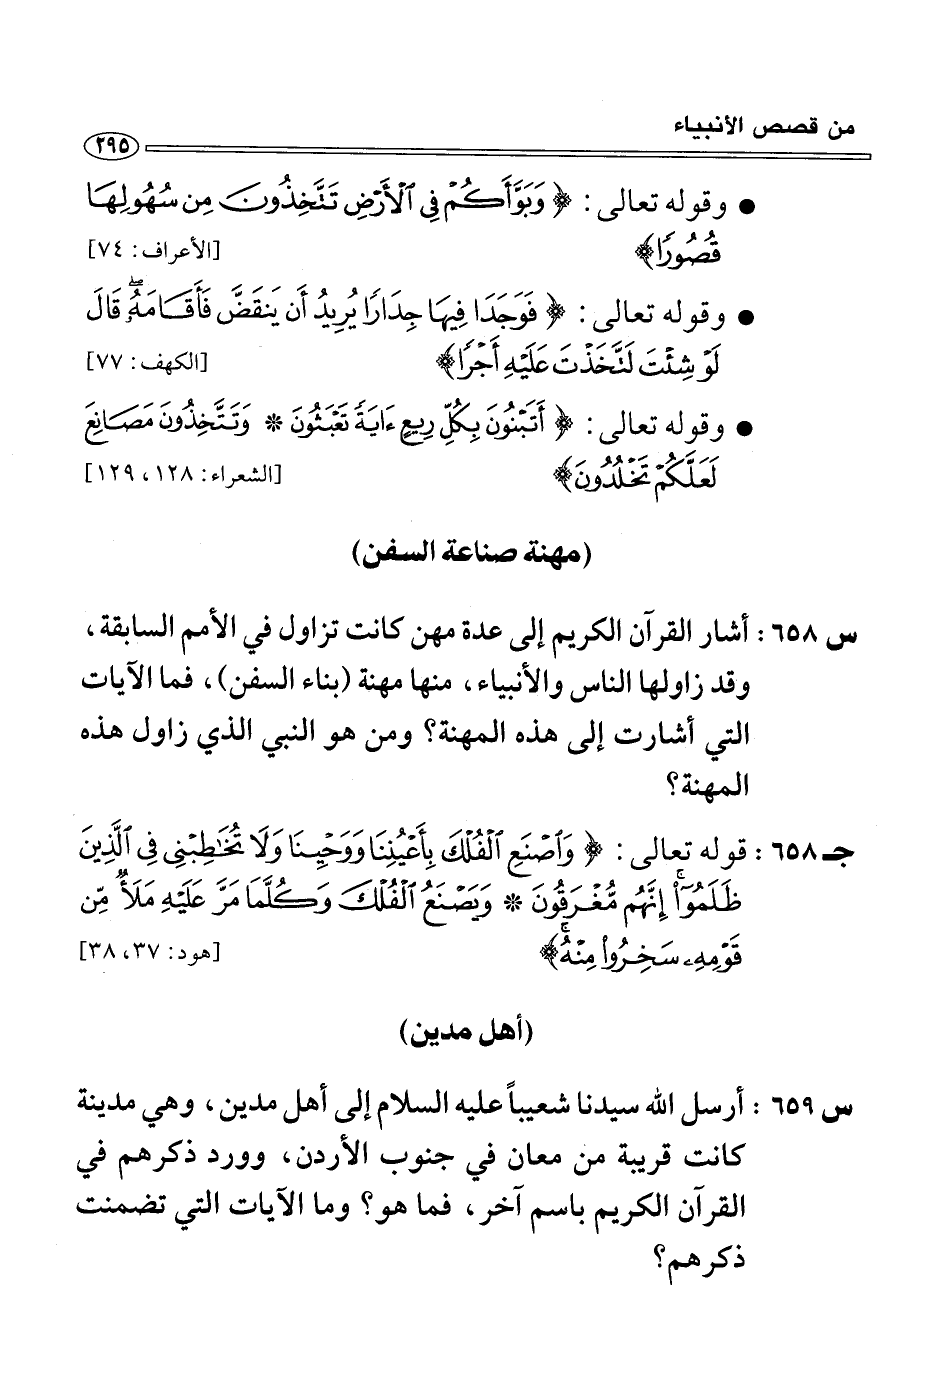 من قصص الأنبياء
٢٩٥
● وقوله تعالى: ﴿ وَبَوَّأَكُمْ فِي ٱلْأَرْضِ تَتَّخِذُونَ مِن سُهُولِهَا
قُصُورًا﴾ [الأعراف: ٧٤]
● وقوله تعالى: ﴿ فَوَجَدَا فِيهَا جِدَارًا يُرِيدُ أَن يَنقَضَّ فَأَقَامَهُۥۖ قَالَ
لَوْ شِئْتَ لَتَّخَذْتَ عَلَيْهِ أَجْرًا﴾ [الكهف: ٧٧]
● وقوله تعالى: ﴿ أَتَبْنُونَ بِكُلِّ رِيعٍ ءَايَةً تَعْبَثُونَ * وَتَتَّخِذُونَ مَصَانِعَ
لَعَلَّكُمْ تَخْلُدُونَ﴾ [الشعراء: ١٢٨، ١٢٩]
(مهنة صناعة السفن)
س ٦٥٨: أشار القرآن الكريم إلى عدة مهن كانت تزاول في الأمم السابقة،
وقد زاولها الناس والأنبياء، منها مهنة (بناء السفن)، فما الآيات
التي أشارت إلى هذه المهنة؟ ومن هو النبي الذي زاول هذه
المهنة؟
جـ ٦٥٨: قوله تعالى: ﴿ وَٱصْنَعِ ٱلْفُلْكَ بِأَعْيُنِنَا وَوَحْيِنَا وَلَا تُخَٰطِبْنِى فِى ٱلَّذِينَ
ظَلَمُوٓا۟ۚ إِنَّهُم مُّغْرَقُونَ * وَيَصْنَعُ ٱلْفُلْكَ وَكُلَّمَا مَرَّ عَلَيْهِ مَلَأٌ مِّن
قَوْمِهِۦ سَخِرُوا۟ مِنْهُۚ﴾ [هود: ٣٧، ٣٨]
(أهل مدين)
س ٦٥٩: أرسل الله سيدنا شعيباً عليه السلام إلى أهل مدين، وهي مدينة
كانت قريبة من معان في جنوب الأردن، وورد ذكرهم في
القرآن الكريم باسم آخر، فما هو؟ وما الآيات التي تضمنت
ذكرهم؟